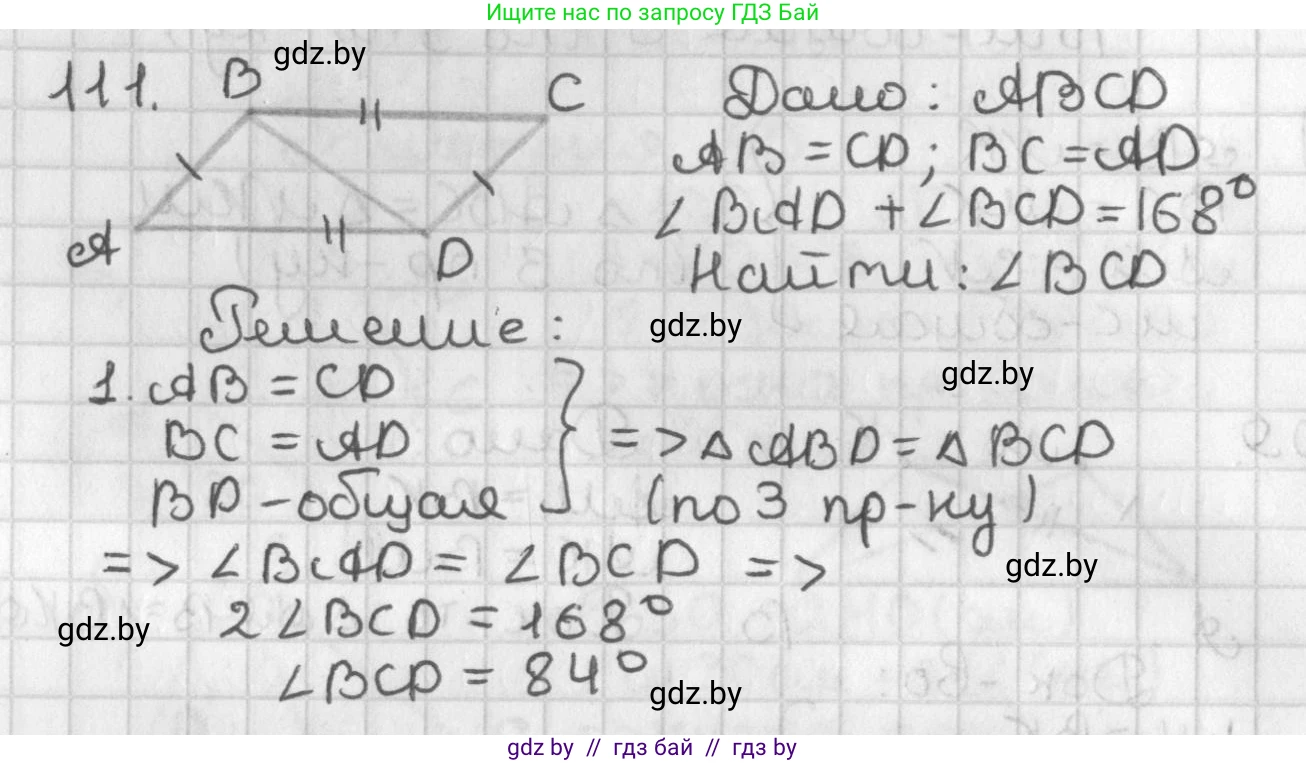 Ищите нас по запросу ГДЗ Бай
gdz.by
111. B C
A D
Дано: ABCD
AB = CD; BC = AD
∠BAD + ∠BCD = 168°
Найти: ∠BCD
Решение:
gdz.by
gdz.by
1. AB = CD
BC = AD
BD - общая
=> △ABD = △BCD
(по 3 пр-ку)
=> ∠BAD = ∠BCD =>
gdz.by
2∠BCD = 168°
gdz.by
∠BCD = 84°
gdz.by
gdz by // гдз бай // гдз by